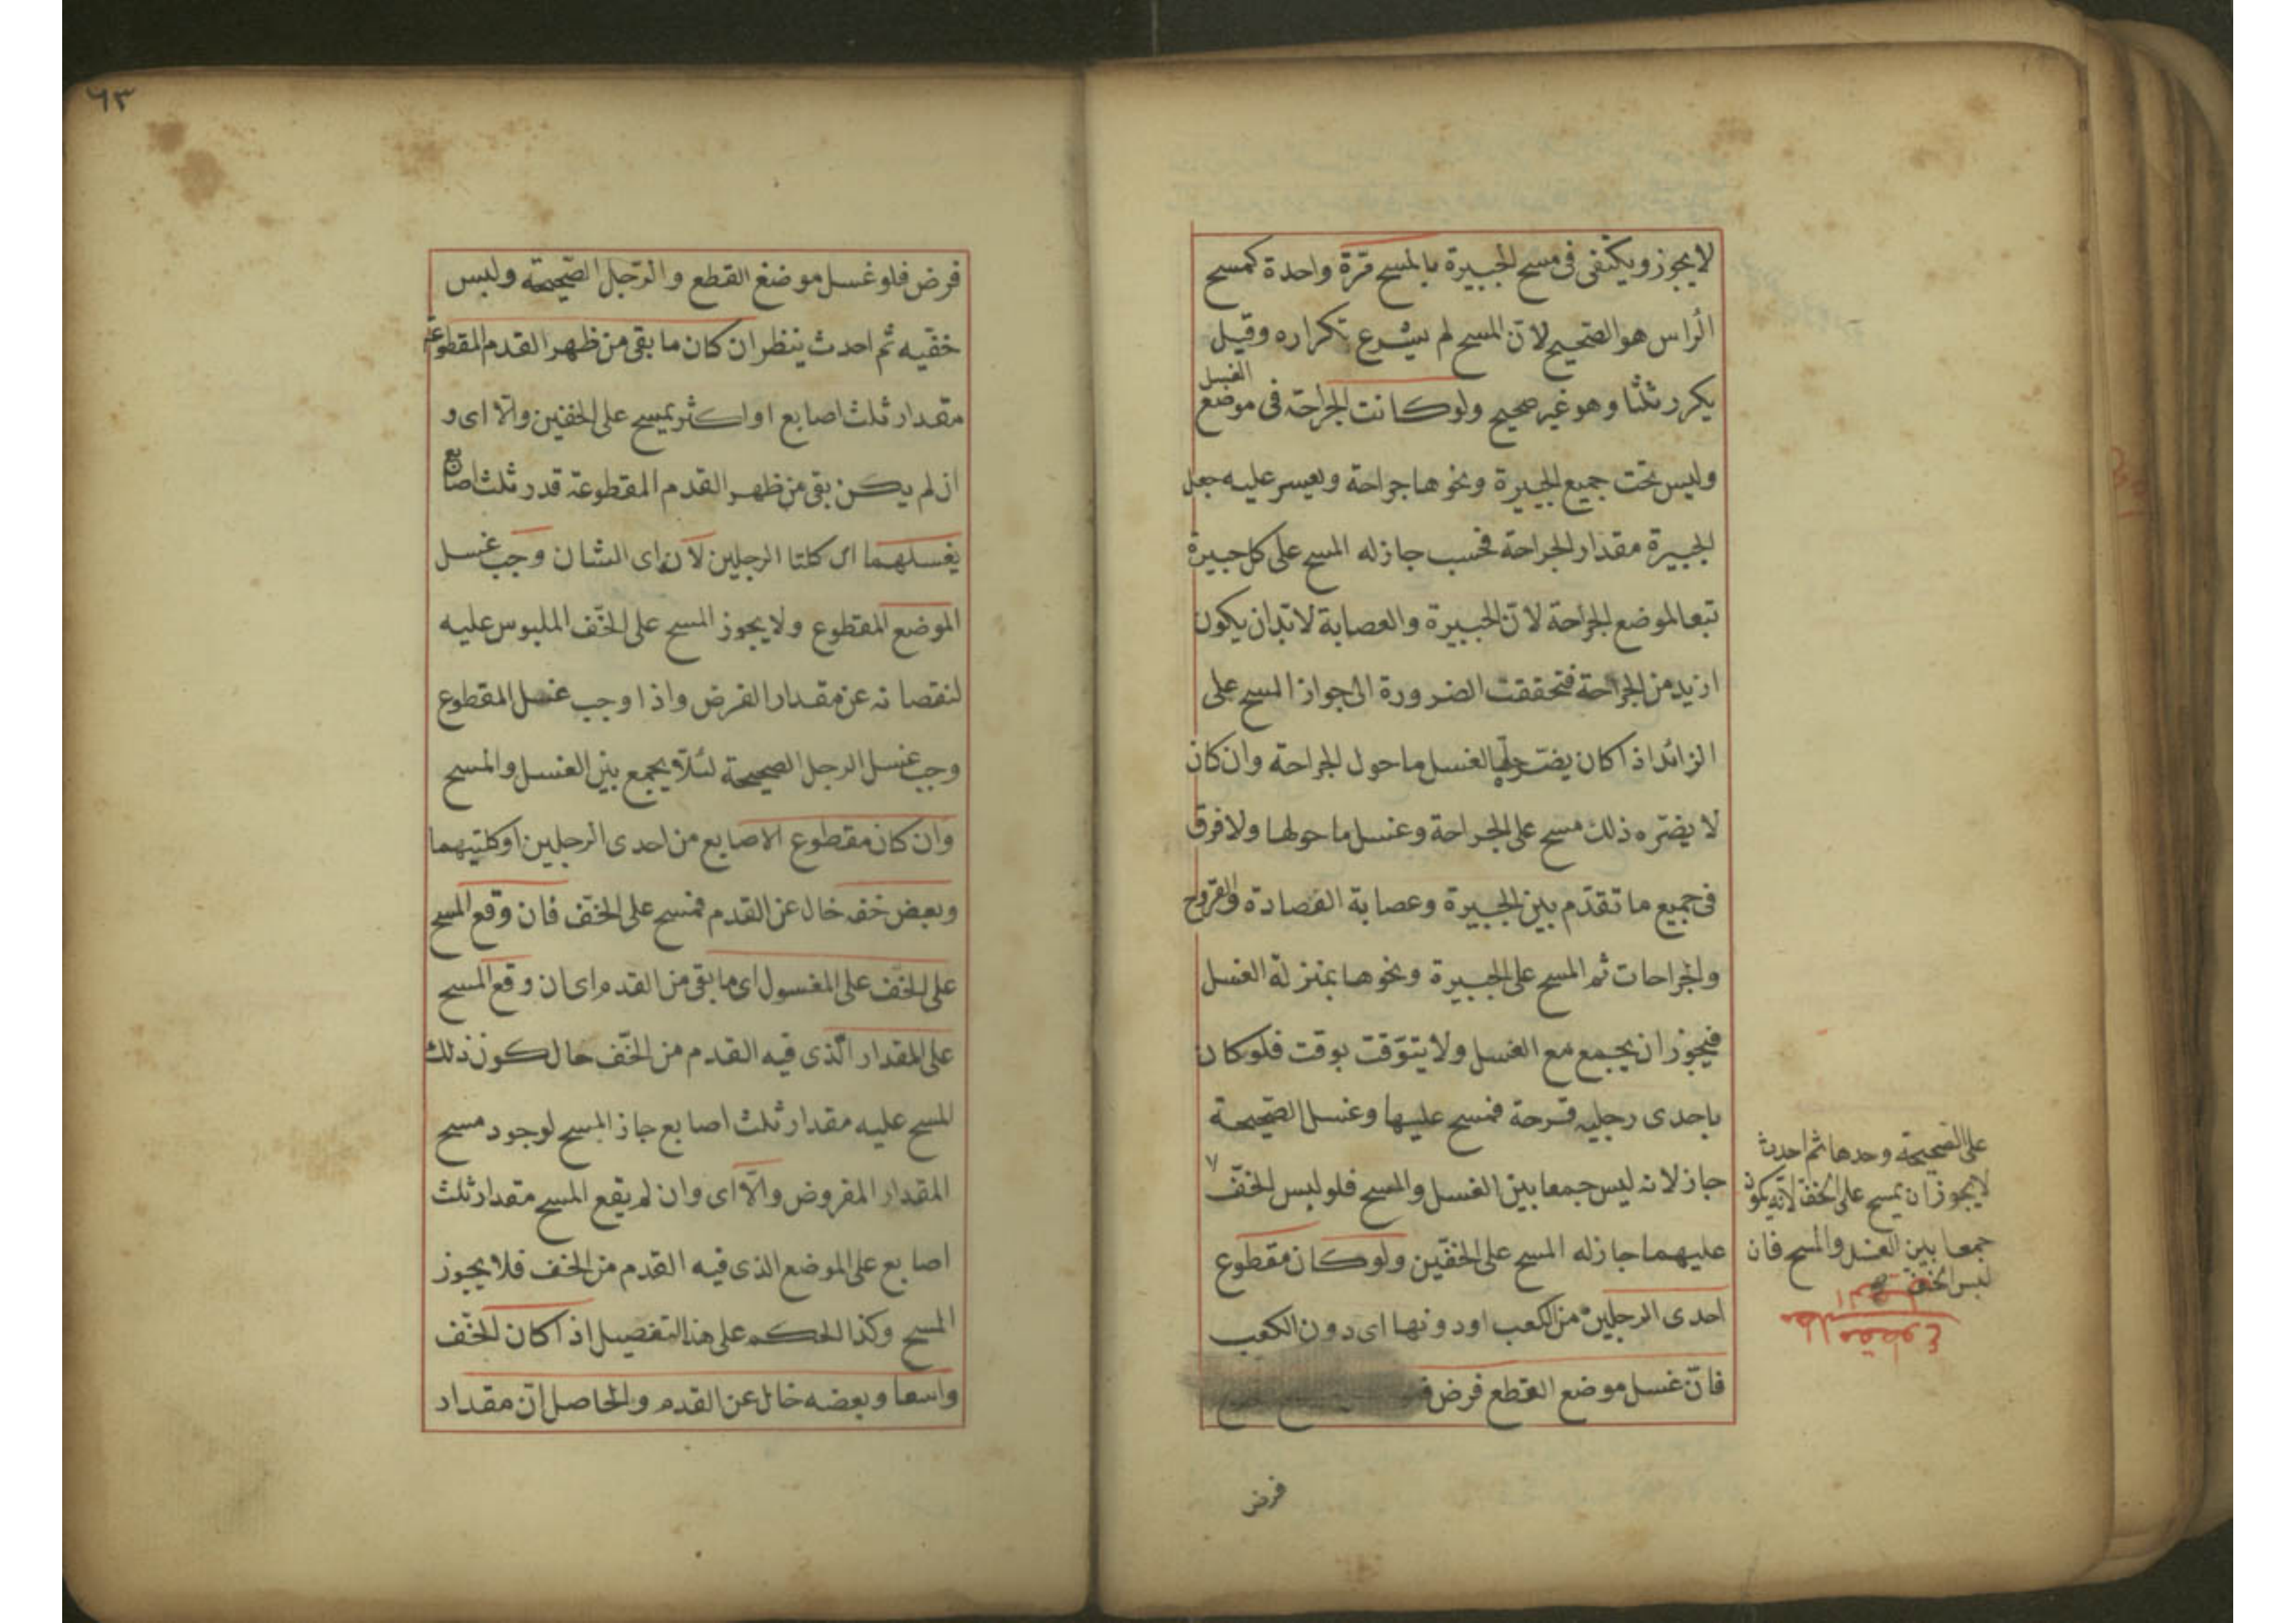 لا يجوز ويكتفى فى مسح الجبيرة بالمسح مرّة واحدة كمسح
الرأس هو الصّحيح لانّ المسح لم يشرع تكراره وقيل
يكرر ثلثا وهو غير صحيح ولو كانت الجراحة فى موضع
الغسل
وليس تحت جميع الجبيرة ونحوها جراحة ويعسر عليه جعل
الجبيرة مقدار الجراحة فحسب جاز له المسح على كل جبيرة
تبعا لموضع الجراحة لانّ الجبيرة والعصابة لا بّد ان يكون
ازيد من الجراحة فتحققت الضرورة الى جواز المسح على
الزائد اذا كان يضرّ الغسل ما حول الجراحة وان كان
لا يضرّه ذلك مسح على الجراحة وغسل ما حولها ولا فرق
فى جميع ما تقدّم بين الجبيرة وعصابة الفصادة والقروح
والجراحات ثم المسح على الجبيرة ونحوها بمنزلة الغسل
فيجوز ان يجمع مع الغسل ولا يتوّقت بوقت فلو كان
باحدى رجليه قرحة فمسح عليها وغسل الصّحيحة
جاز لانه ليس جمعا بين الغسل والمسح فلو لبس الخفّ
على الصّحيحة وحدها ثم احدث
لا يجوز ان يمسح على الخفّ لانّه يكون
جمعا بين الغسل والمسح فان
لبس الخفّ
عليهما جاز له المسح على الخفّين ولو كان مقطوع
احدى الرجلين من الكعب او دونها اى دون الكعب
فانّ غسل موضع القطع فرض
فرض
٦٣
فرض فلو غسل موضع القطع والرّجل الصّحيحة ولبس
خفّيه ثم احدث ينظر ان كان ما بقى من ظهر القدم المقطوعة
مقدار ثلث اصابع او اكثر يمسح على الخفّين والّا اى و
ان لم يكن بقى من ظهر القدم المقطوعة قدر ثلث اصابع
يغسلهما اى كلتا الرجلين لانّ اى الشان وجب غسل
الموضع المقطوع ولا يجوز المسح على الخفّ الملبوس عليه
لنقصانه عن مقدار الفرض واذا وجب غسل المقطوع
وجب غسل الرجل الصحيحة لئلّا يجمع بين الغسل والمسح
وان كان مقطوع الاصابع من احدى الرجلين او كلتيهما
وبعض خفه خال عن القدم فمسح على الخفّ فان وقع المسح
على الخفّ على المغسول اى ما بقى من القدم اى ان وقع المسح
على المقدار الّذى فيه القدم من الخفّ حال كون ذلك
المسح عليه مقدار ثلث اصابع جاز المسح لوجود مسح
المقدار المفروض والّا اى وان لم يقع المسح مقدار ثلث
اصابع على الموضع الذى فيه القدم من الخف فلا يجوز
المسح وكذا الحكم على هذا التفصيل اذا كان الخفّ
واسعا وبعضه خال عن القدم والحاصل انّ مقدار